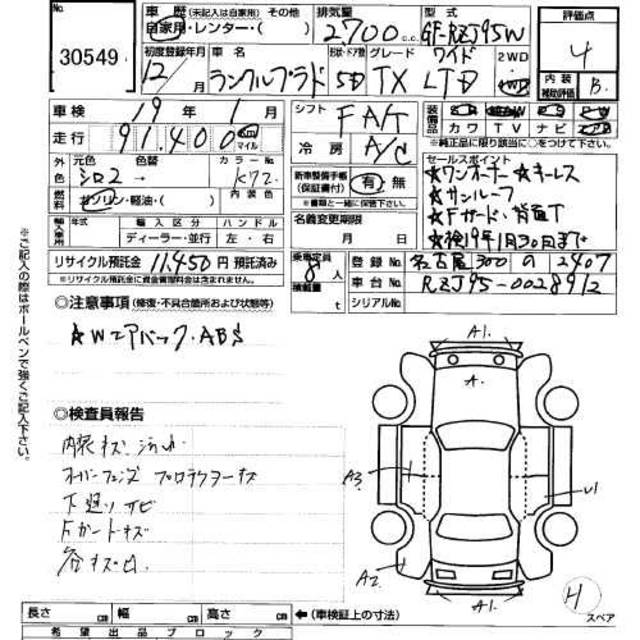 No.
30549
車歴 (未記入は自家用) その他
自家用・レンター・( )
排気量
2,700 c.c.
型式
GF-RZJ95W
評価点
4
内装
補助評価
B.
初度登録年月
12/ 年 月
車名
ランクルプラド
形状・ドア数
5D
グレード
TX LTD
ワイド
2WD
4WD
車検 19 年 1 月
走行 91,400 km マイル
シフト FA/T
冷房 A/C
装備品
カワ TV ナビ
※純正品に限り該当に○をつけて下さい。
外色 元色 色替 カラーNo.
シロ2 → K72
燃料 ガソリン・軽油・( ) 内装色
新車整備手帳
(保証書付)
有・無
※書類と一緒に保管下さい。
セールスポイント
☆ワンオーナー ☆キーレス
☆サンルーフ
☆Fガード・背面T
☆検19年1月30日まで
輸入車用 年式 輸入区分 ハンドル
ディーラー・並行 左・右
名義変更期限
月 日
リサイクル預託金 11,450 円 預託済み
※リサイクル預託金に資金管理料金は含まれません。
乗車定員 8 人
積載量 t
登録No. 名古屋 300 の 2407
車台No. RZJ95-0028912
シリアルNo.
◎注意事項 (修復・不具合箇所および状態等)
☆Wエアバック・ABS
◎検査員報告
内装キズ
オーバーフェンダ プロテクターキズ
下廻りサビ
Fガードキズ
各キズ凹.
A1.
A.
A3.
U1
A2.
A1.
4
スペア
長さ cm 幅 cm 高さ cm ←(車検証上の寸法)
希望出品ブロック
※ご記入の際はボールペンで強くご記入下さい。